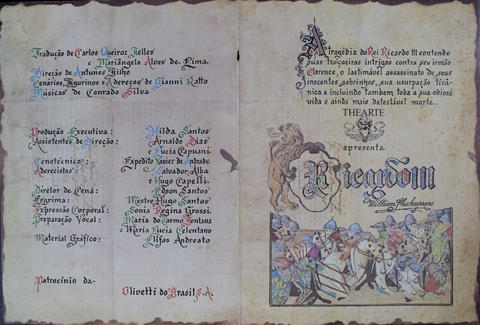 Tradução de Carlos Queiroz Telles
e Mariângela Alves de Lima.
Direção de Antunes Filho
Cenários, Figurinos e Adereços de Gianni Ratto
Músicas de Conrado Silva
Produção Executiva: Hilda Santos
Assistentes de Direção: Arnaldo Dias
e Lucia Capuani.
Cenotécnico: Expedito Xavier de Andrade
Aderecistas: Salvador Alba
e Hugo Capelli.
Diretor de Cena: Edson Santos
Esgrima: Mestre Hugo Santos
Expressão Corporal: Sonia Regina Grossi.
Preparação Vocal: Maria do Carmo Fontana
Maria Lucia Celentano
Material Gráfico: Elifas Andreato
Patrocínio da-
Olivetti do Brasil S.A.
A tragédia do Rei Ricardo III contendo
suas traiçoeiras intrigas contra seu irmão
Clarence, o lastimável assassinato de seus
inocentes sobrinhos, sua usurpação tirâ-
nica e incluindo tambem toda a sua odiosa
vida e ainda mais detestável morte..
THEARTE
apresenta
Ricardo III
de
William Shakespeare